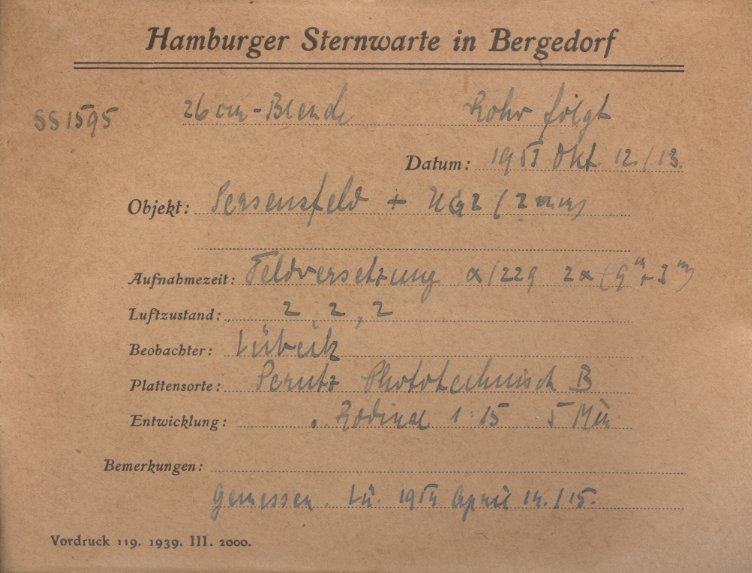 Hamburger Sternwarte in Bergedorf
SS 1595 26 cm-Blende Rohr folgt
Datum: 1953 Okt 12./13.
Objekt: Perseusfeld + UG2 (2 mm)
Aufnahmezeit: Feldversetzung α/229 2α (9ᵐ + 3ᵐ)
Luftzustand: 2, 2, 2
Beobachter: Lübeck
Plattensorte: Perutz Phototechnisch B
Entwicklung: Rodinal 1:15 5 Min
Bemerkungen:
Gemessen. Lü. 1954 April 14./15.
Vordruck 119. 1939. III. 2000.